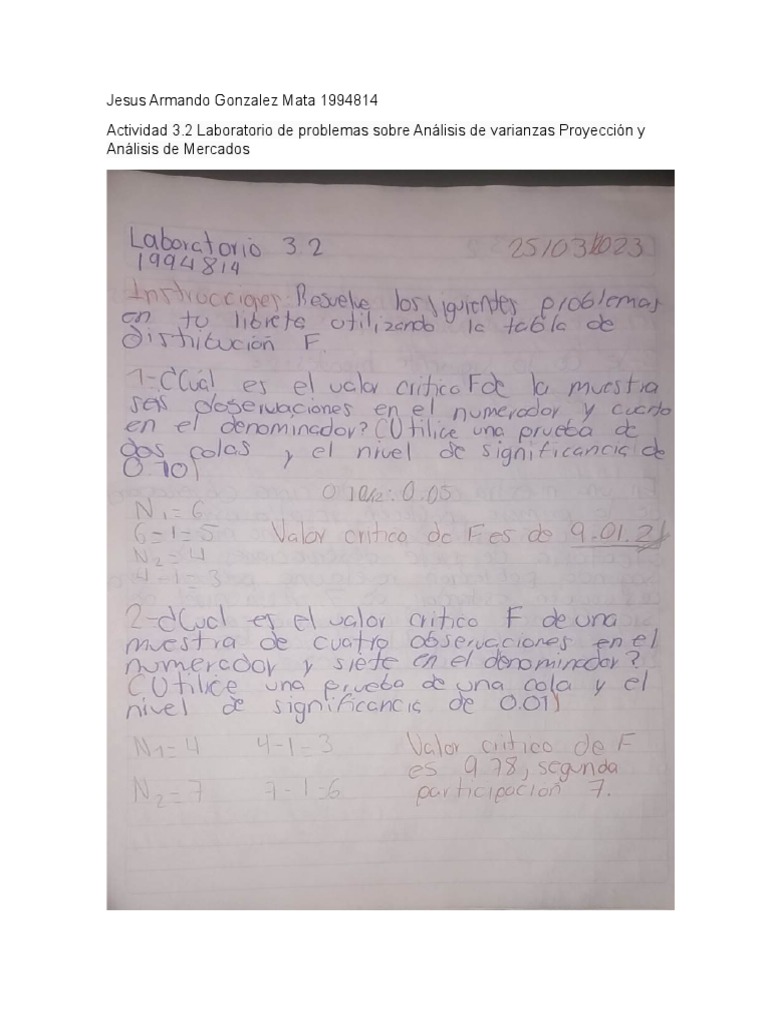 Jesus Armando Gonzalez Mata 1994814
Actividad 3.2 Laboratorio de problemas sobre Análisis de varianzas Proyección y
Análisis de Mercados
Laboratorio 3.2 25/03/2023
1994814
Instrucciones: Resuelve los siguientes problemas
en tu libreta utilizando la tabla de
distribución F.
1-¿Cuál es el valor critico F de la muestra
seis observaciones en el numerador y cuarto
en el denominador? (Utilice una prueba de
dos colas y el nivel de significancia de
0.10)
0.10/2: 0.05
N1=6
6-1=5 Valor critico de F es de 9.01.2
N2=4
4-1=3
2-¿Cual es el valor critico F de una
muestra de cuatro observacciones en el
numerador y siete en el denominador?
(Utilice una prueba de una cola y el
nivel de significancia de 0.01)
N1=4 4-1=3 Valor critico de F
es 9.78, segunda
N2=7 7-1=6 participacion 7.